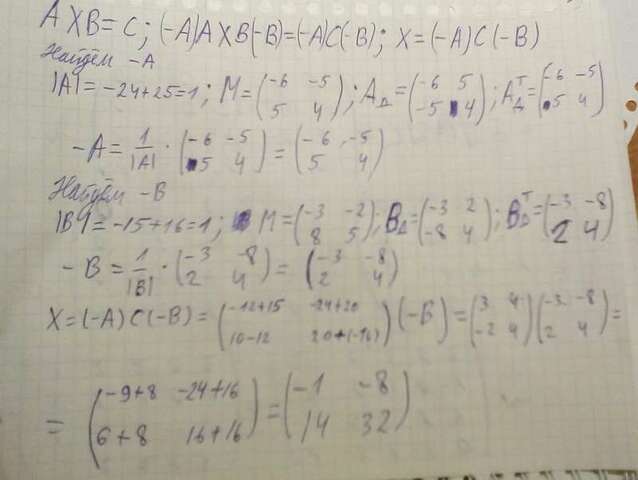 A X B = C; (-A) A X B (-B) = (-A) C (-B); X = (-A) C (-B)
Найдём -A
|A| = -24+25=1; M = (-6 -5; 5 4); A_д = (-6 5; -5 4); A_д^T = (-6 -5; 5 4)
-A = 1/|A| · (-6 -5; 5 4) = (-6 -5; 5 4)
Найдём -B
|B| = -15+16=1; M = (-3 -2; 8 5); B_д = (-3 2; -8 4); B_д^T = (-3 -8; 2 4)
-B = 1/|B| · (-3 -8; 2 4) = (-3 -8; 2 4)
X = (-A) C (-B) = (-12+15 -24+20; 10-12 20+(-16)) (-B) = (3 4; -2 4) (-3 -8; 2 4) =
= (-9+8 -24+16; 6+8 16+16) = (-1 -8; 14 32)